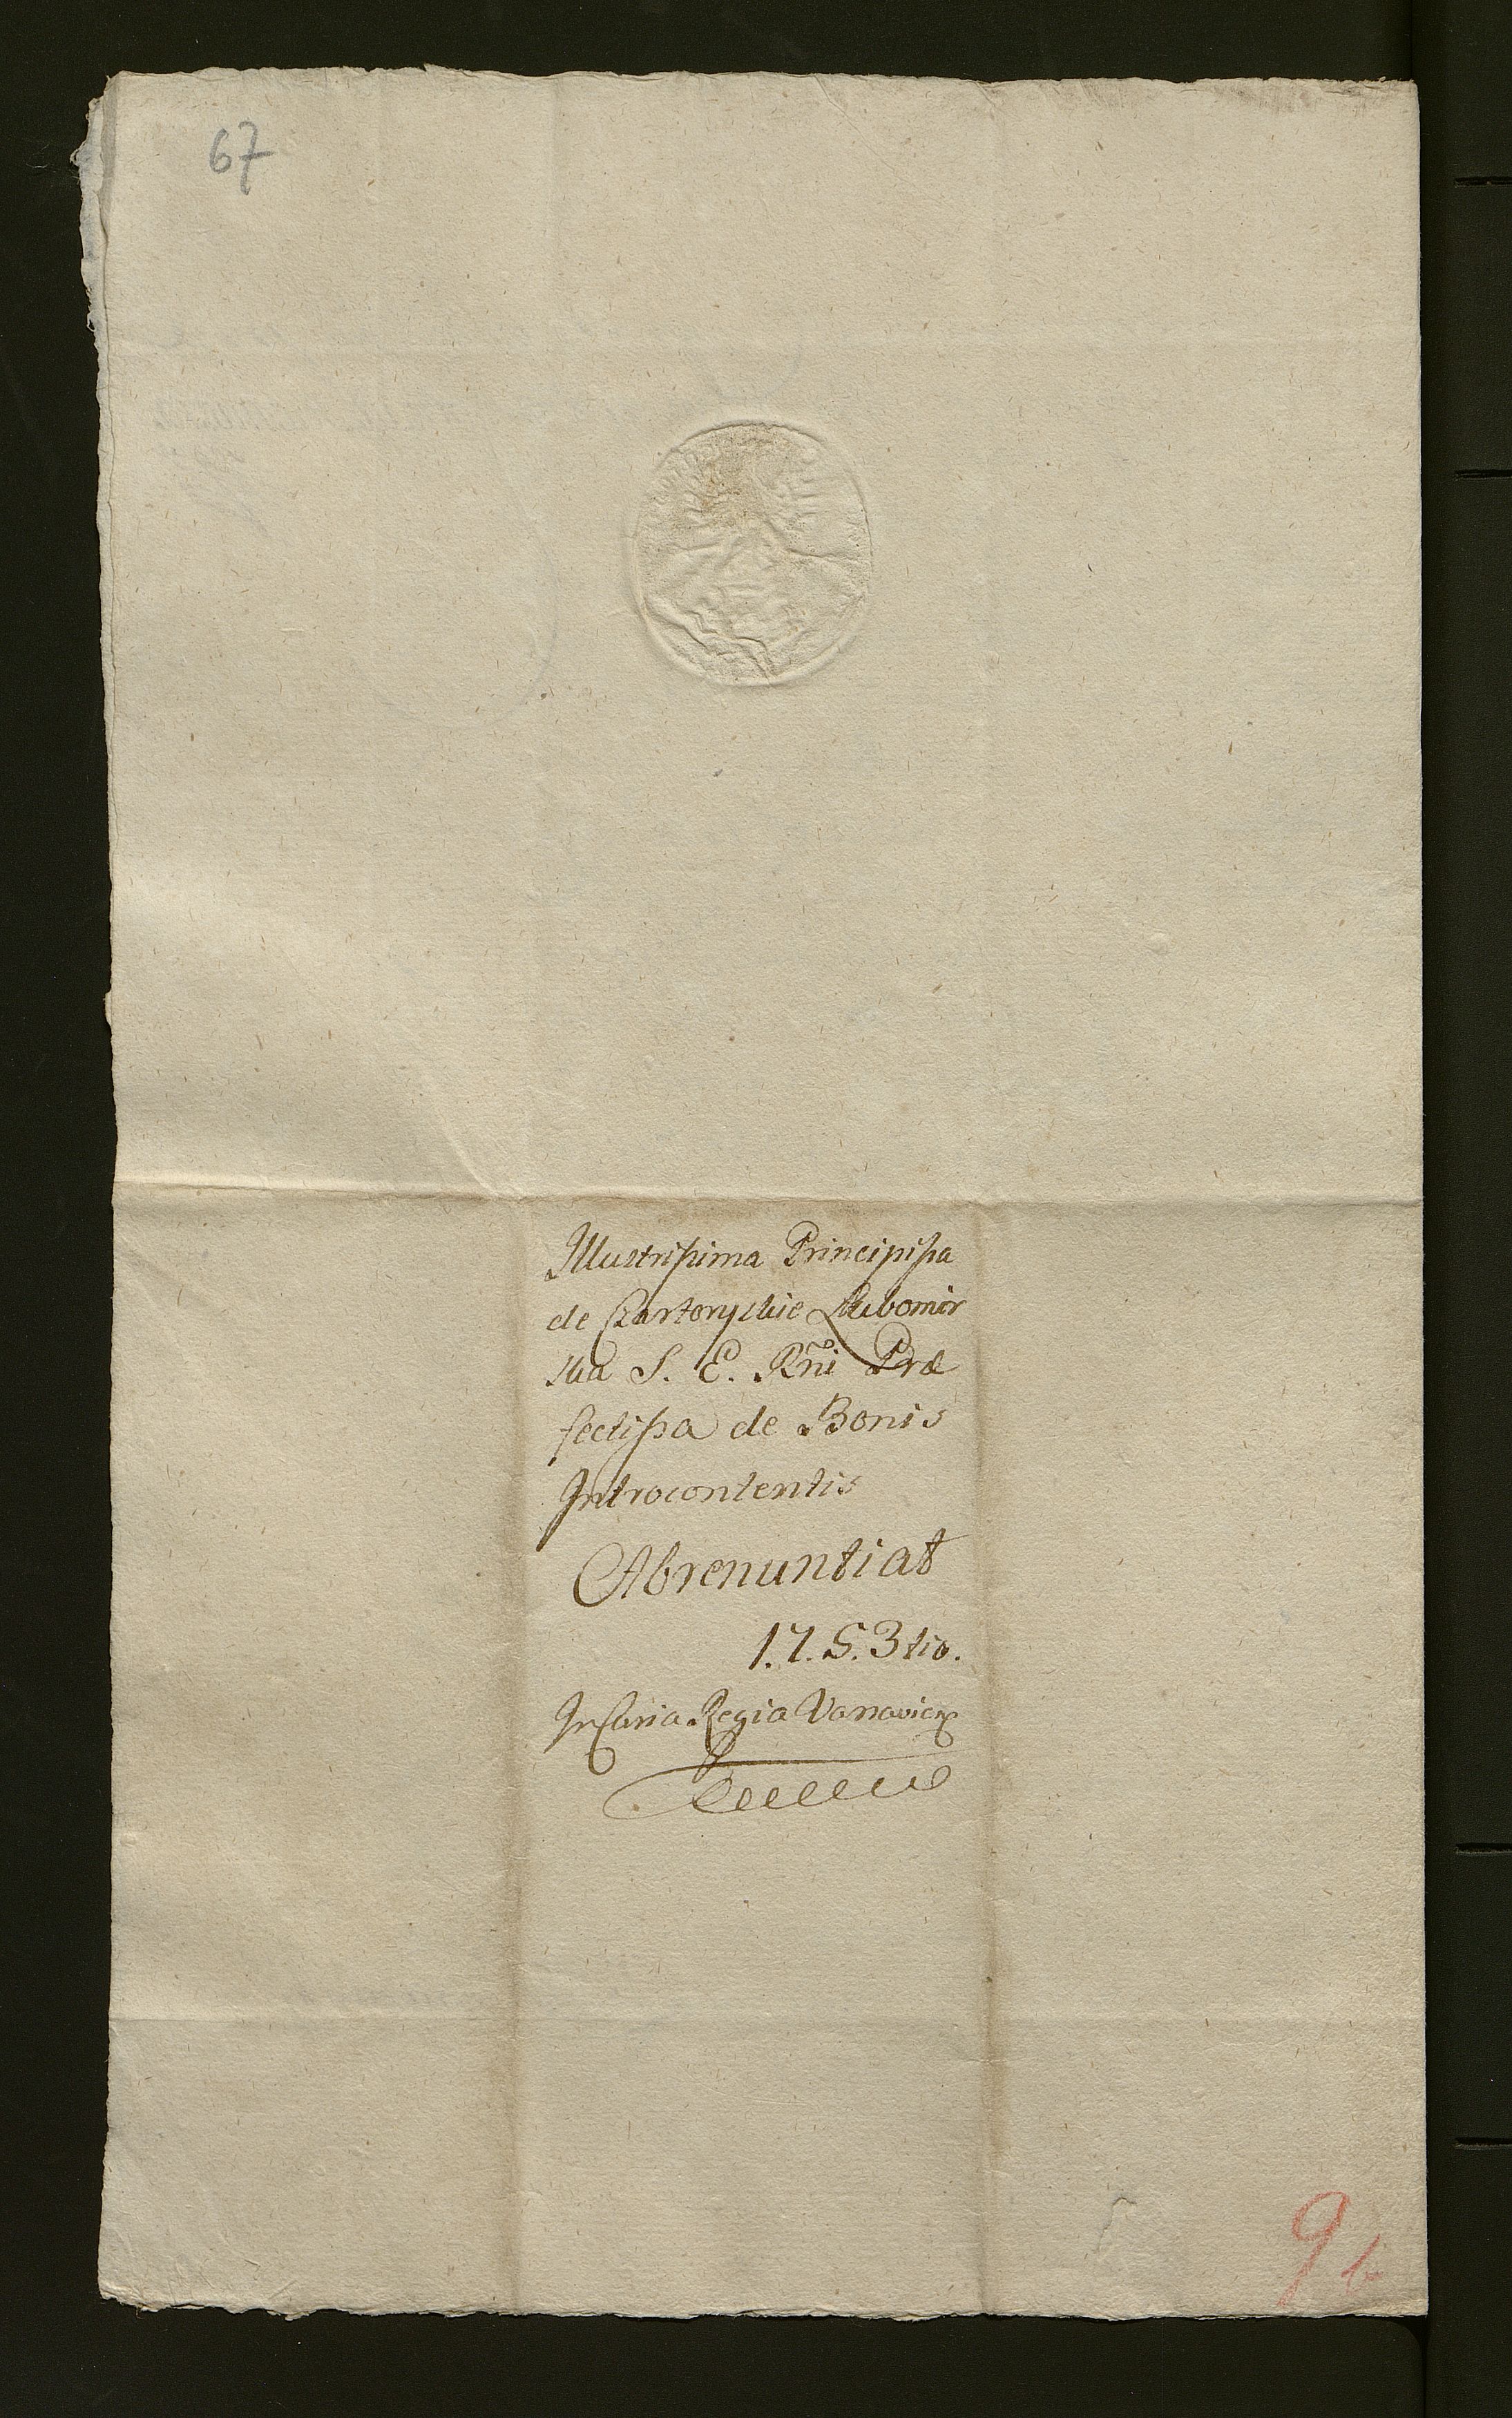 67
Illustrissima Principissa
de Czartoryskie Lubomir
ska S. E. Rñi Præ
fectissa de Bonis
Introcontentis
Abrenuntiat
1.7.5.3tio.
In Curia Regia Varsavien
9b